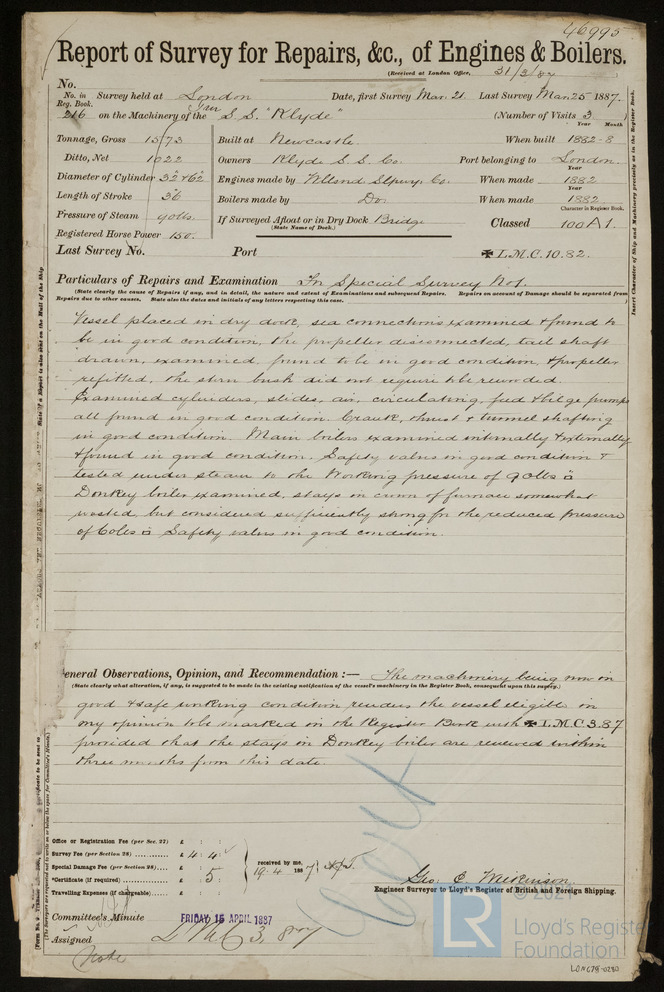 46995
Report of Survey for Repairs, &c., of Engines & Boilers.
(Received at London Office, 31/3/87
No.
No. in Reg. Book. 216 Survey held at London Date, first Survey Mar. 21. Last Survey Mar. 25 1887.
on the Machinery of the S.S. "Klyde" (Number of Visits 3
Tonnage, Gross 1573 Built at Newcastle When built 1882-8
Ditto, Net 1022 Owners Klyde S.S. Co. Port belonging to London
Diameter of Cylinder 32 & 62 Engines made by Wllsnd Slpwy. Co. When made 1882
Length of Stroke 36 Boilers made by Do. When made 1882
Pressure of Steam 90lbs. If Surveyed Afloat or in Dry Dock Bridge Classed 100A1.
(State Name of Dock.)
Character in Register Book.
Registered Horse Power 150.
Last Survey No. Port ✠ L.M.C. 10.82.
Particulars of Repairs and Examination In Special Survey No1.
(State clearly the cause of Repairs if any, and in detail, the nature and extent of Examinations and subsequent Repairs. Repairs on account of Damage should be separated from Repairs due to other causes. State also the dates and initials of any letters respecting this case.
Vessel placed in dry dock, sea connections examined & found to
be in good condition, the propeller disconnected, tail shaft
drawn, examined, found to be in good condition, & propeller
refitted, the stern bush did not require to be rewooded.
Examined cylinders, slides, air, circulating, feed & bilge pumps
all found in good condition. Crank, thrust & tunnel shafting
in good condition. Main boilers examined internally & externally
& found in good condition. Safety valves in good condition &
tested under steam to the Working pressure of 90lbs □"
Donkey boiler examined, stays on crown of furnace somewhat
wasted but considered sufficiently strong for the reduced pressure
of 60lbs □ Safety valves in good condition.
eneral Observations, Opinion, and Recommendation :— The machinery being now in
(State clearly what alteration, if any, is suggested to be made in the existing notification of the vessel's machinery in the Register Book, consequent upon this survey.)
good & safe working condition renders the vessel eligible in
my opinion to be marked in the Register Book with ✠ L.M.C 3.87
provided that the stays in Donkey boiler are renewed within
three months from this date.
Office or Registration Fee (per Sec. 27) £ : :
Survey Fee (per Section 28) £ 4 : 4 :
Special Damage Fee (per Section 28) £ : :
*Certificate (if required) £ : 5 :
Travelling Expenses (if chargeable) £ : :
received by me, 19.4 1887
Engineer Surveyor to Lloyd's Register of British and Foreign Shipping.
Committee's Minute FRIDAY 15 APRIL 1887
Assigned
Note
© 2021
LR Lloyd's Register
Foundation
LON678-0280